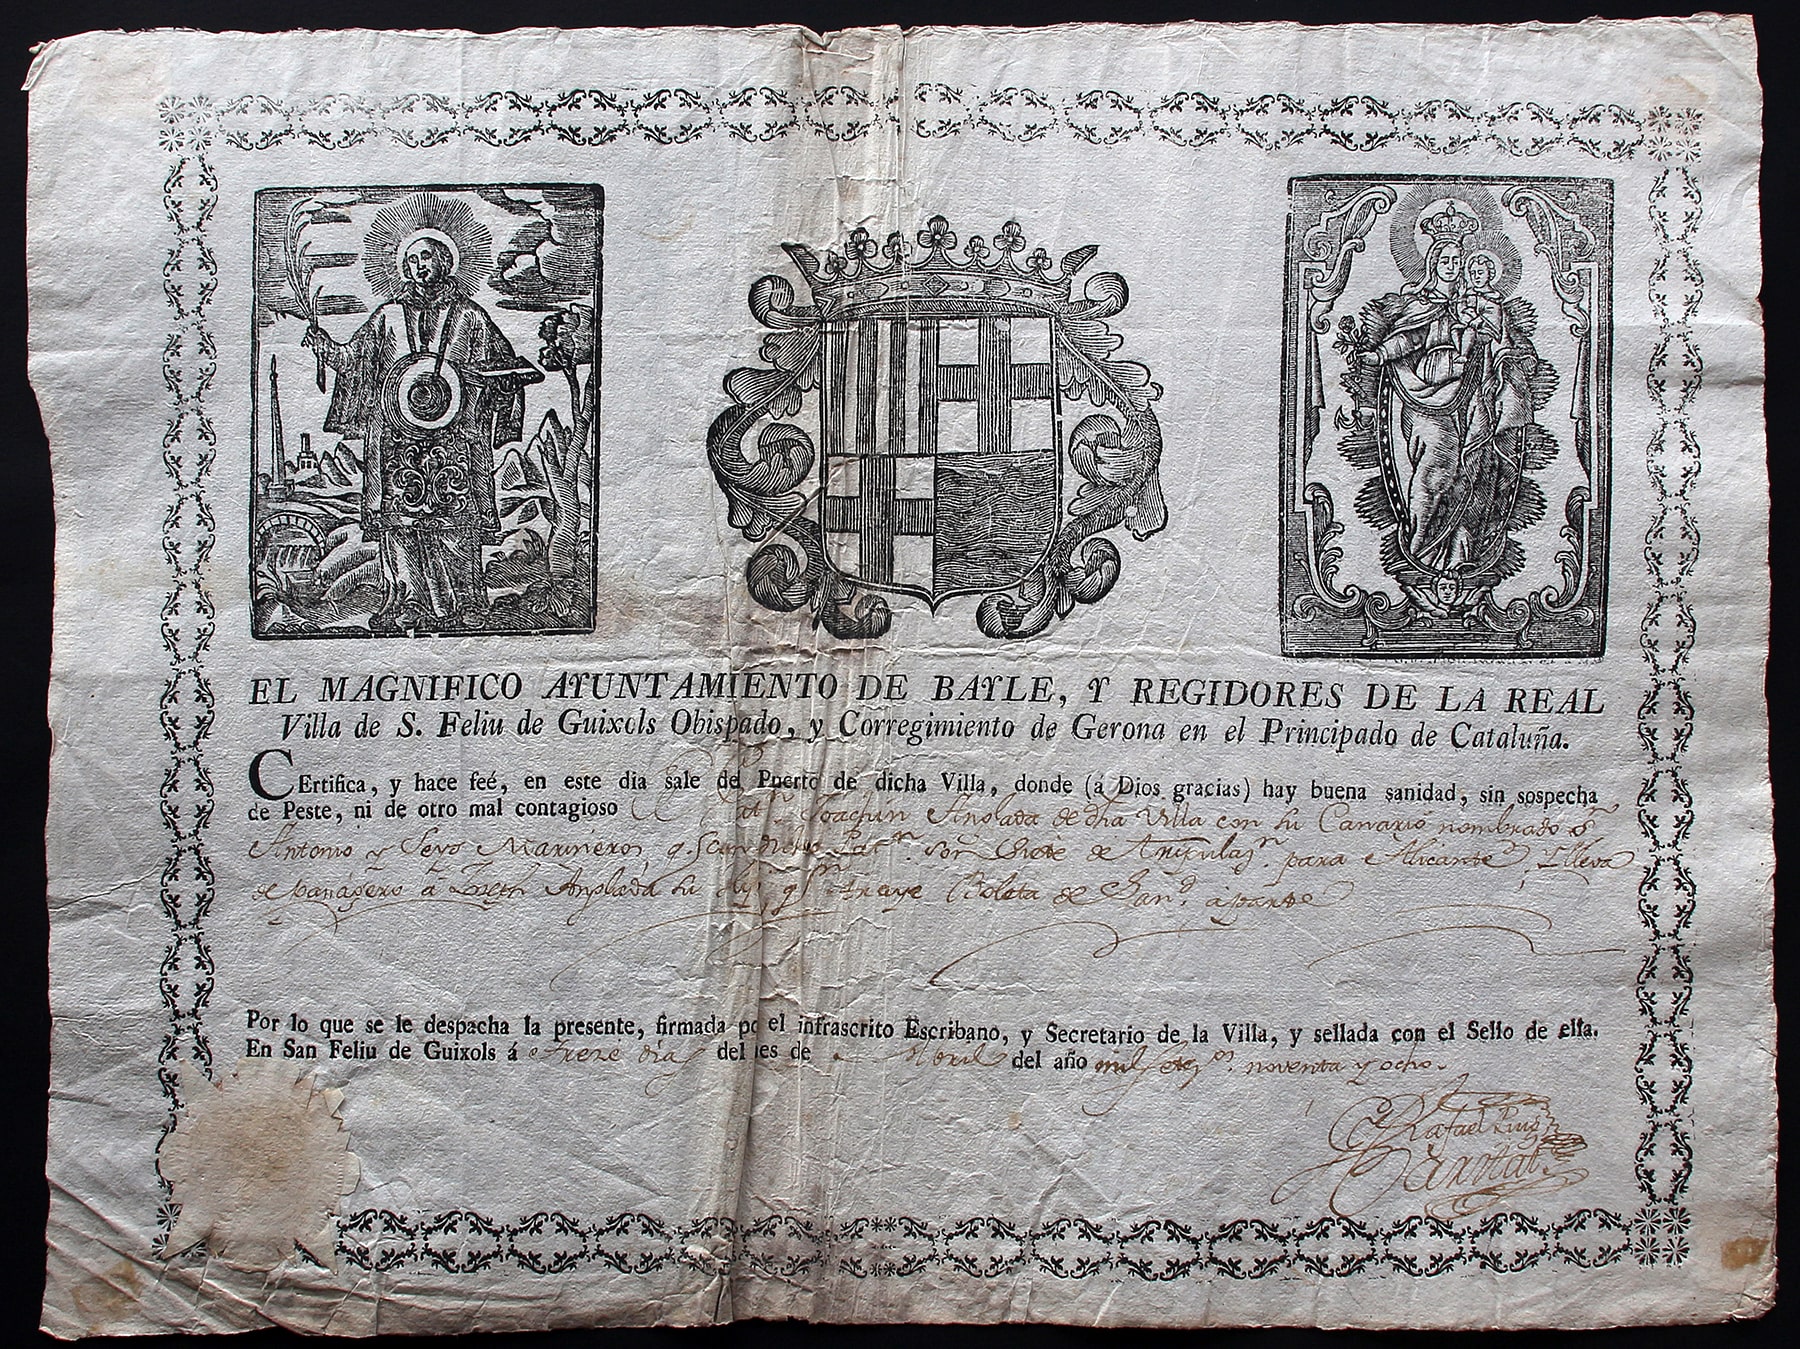 EL MAGNIFICO AYUNTAMIENTO DE BAYLE, Y REGIDORES DE LA REAL
Villa de S. Feliu de Guixols Obispado, y Corregimiento de Gerona en el Principado de Cataluña.
CErtifica, y hace feé, en este dia sale del Puerto de dicha Villa, donde (á Dios gracias) hay buena sanidad, sin sospecha
de Peste, ni de otro mal contagioso Joachin Anslada de dha Villa con su Canario nombrado Sn
Antonio y Seys Marineros, de para Alicante, Lleva
de panagero a Joseph Anslada su q. traye Boleta de San.d aparte
Por lo que se le despacha la presente, firmada po el infrascrito Escribano, y Secretario de la Villa, y sellada con el Sello de ella.
En San Feliu de Guixols á treze dias del es de Abril del año mil set.os noventa y ocho.
Rafael Puig